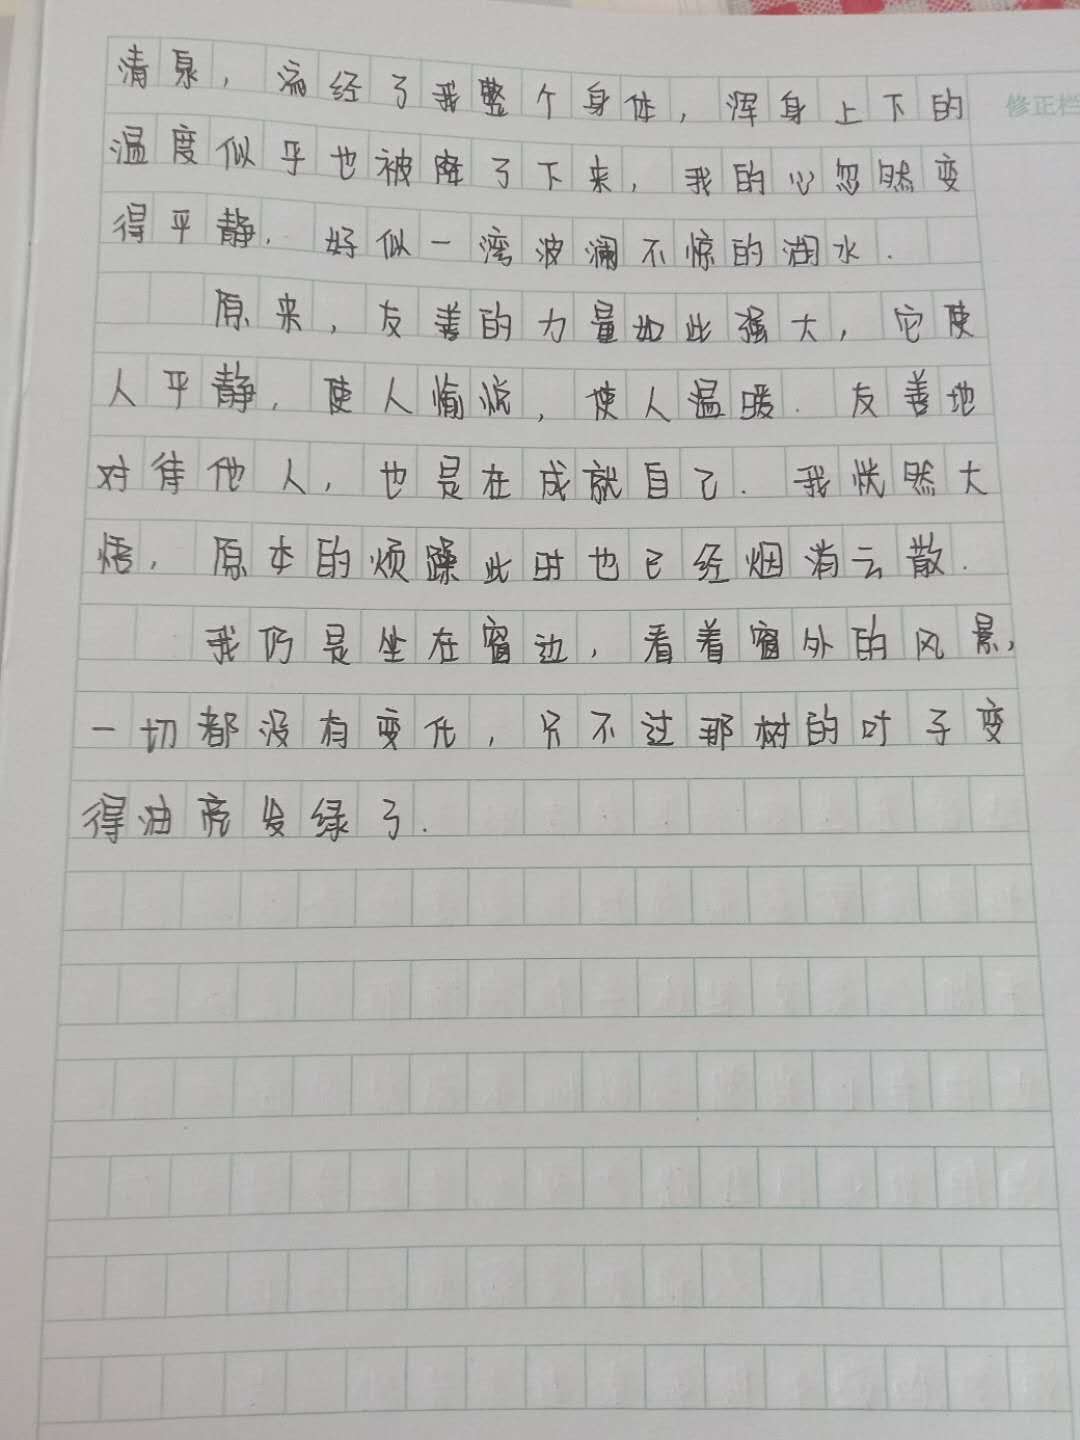 清泉，流经了我整个身体，浑身上下的
修正栏
温度似乎也被降了下来，我的心忽然变
得平静．好似一湾波澜不惊的湖水．
原来，友善的力量如此强大，它使
人平静，使人愉悦，使人温暖．友善地
对待他人，也是在成就自己．我恍然大
悟，原本的烦躁此时也已经烟消云散．
我仍是坐在窗边，看着窗外的风景，
一切都没有变化，只不过那树的叶子变
得油亮发绿了．